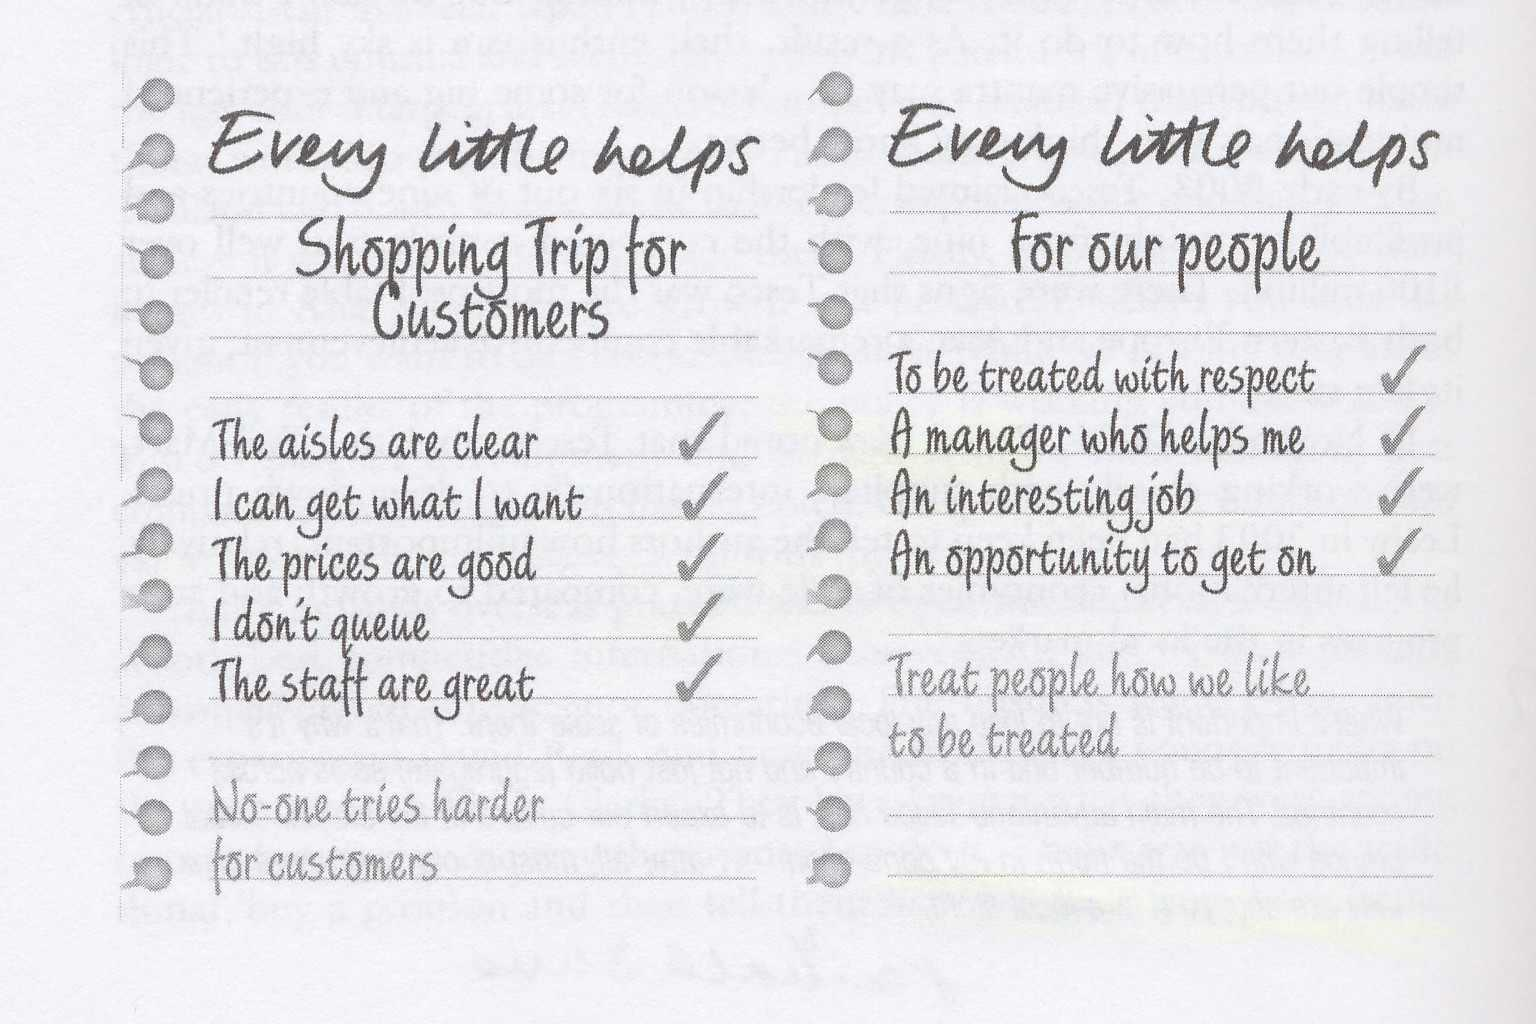 Every little helps
Shopping Trip for
Customers
The aisles are clear ✓
I can get what I want ✓
The prices are good ✓
I don't queue ✓
The staff are great ✓
No-one tries harder
for customers
Every little helps
For our people
To be treated with respect ✓
A manager who helps me ✓
An interesting job ✓
An opportunity to get on ✓
Treat people how we like
to be treated